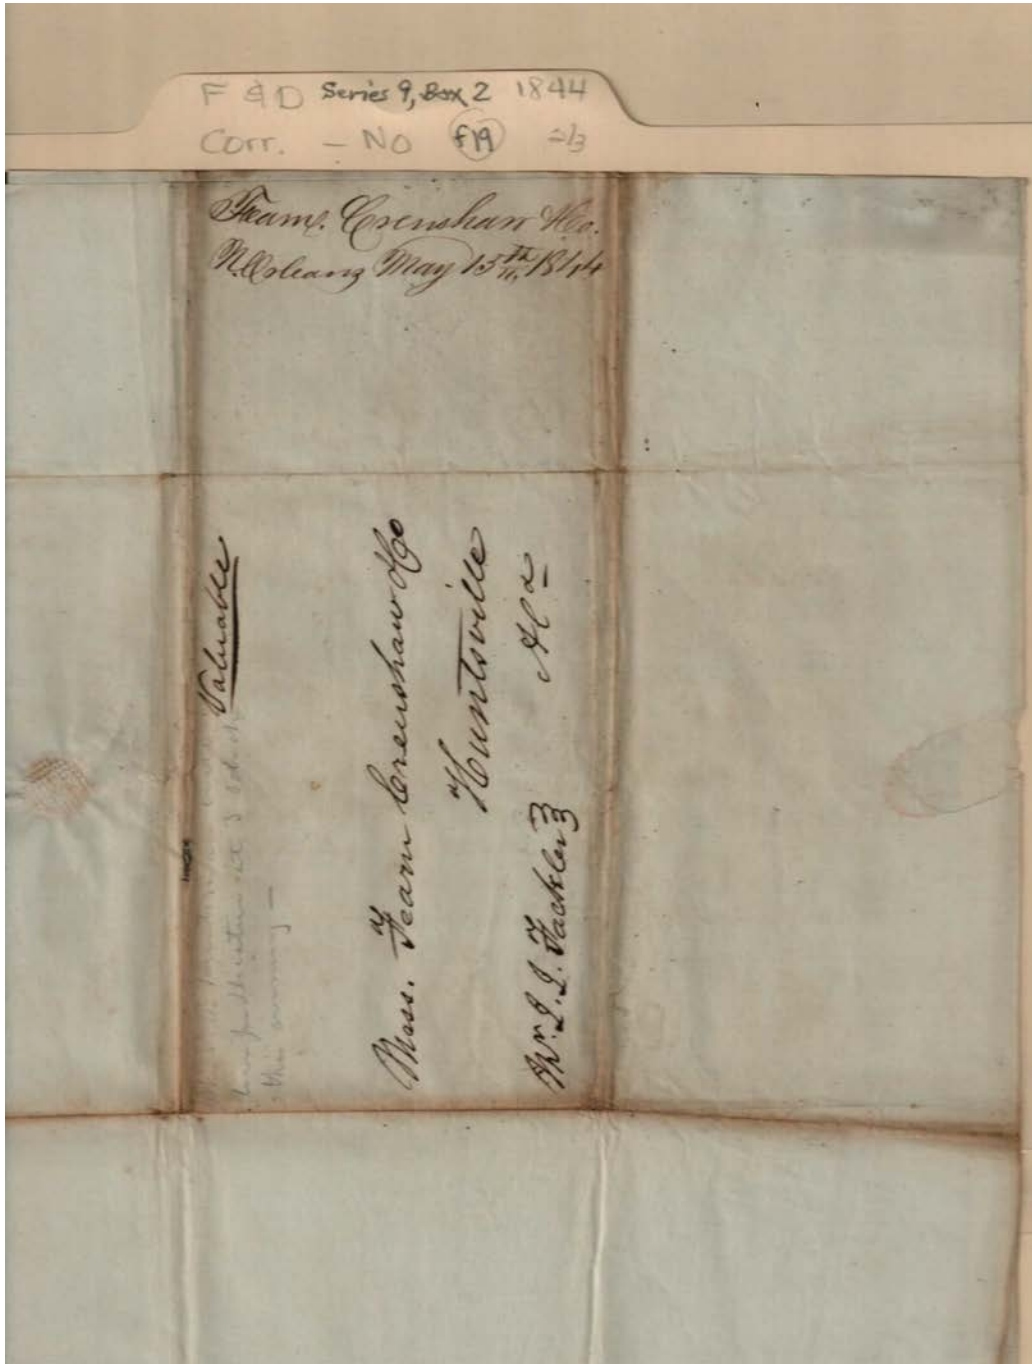 F & D Series 9, Box 2 1844
Corr. - No f19 2/3
Fearn. Crenshaw & Co.
N. Orleans May 15th 1844
Valuable
Mess. Fearn Crenshaw & Co
Huntsville
Ala
Mr. J. J. Fackler
this evening —